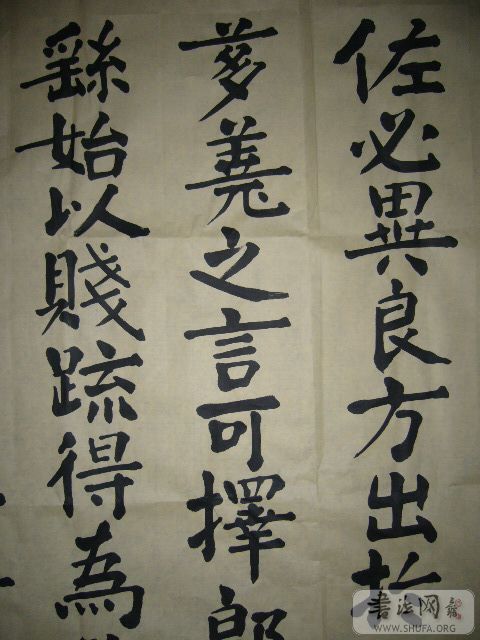 佐必異良方出於
芻蕘之言可擇郎
繇始以賤疏得為
书法网
WWW.SHUFA.ORG